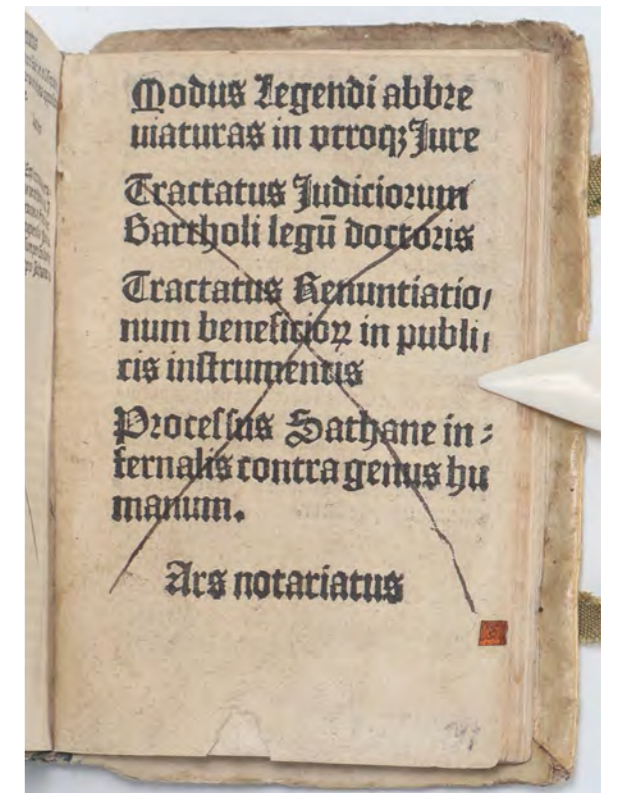 Modus Legendi abbre
uiaturas in vtroqȝ Jure
Tractatus Judiciorum
Bartholi legū doctoris
Tractatus Renuntiatio/
num beneficioꝝ in publi/
cis instrumentis
Processus Sathane in⸗
fernalis contra genus hu
manum.
Ars notariatus